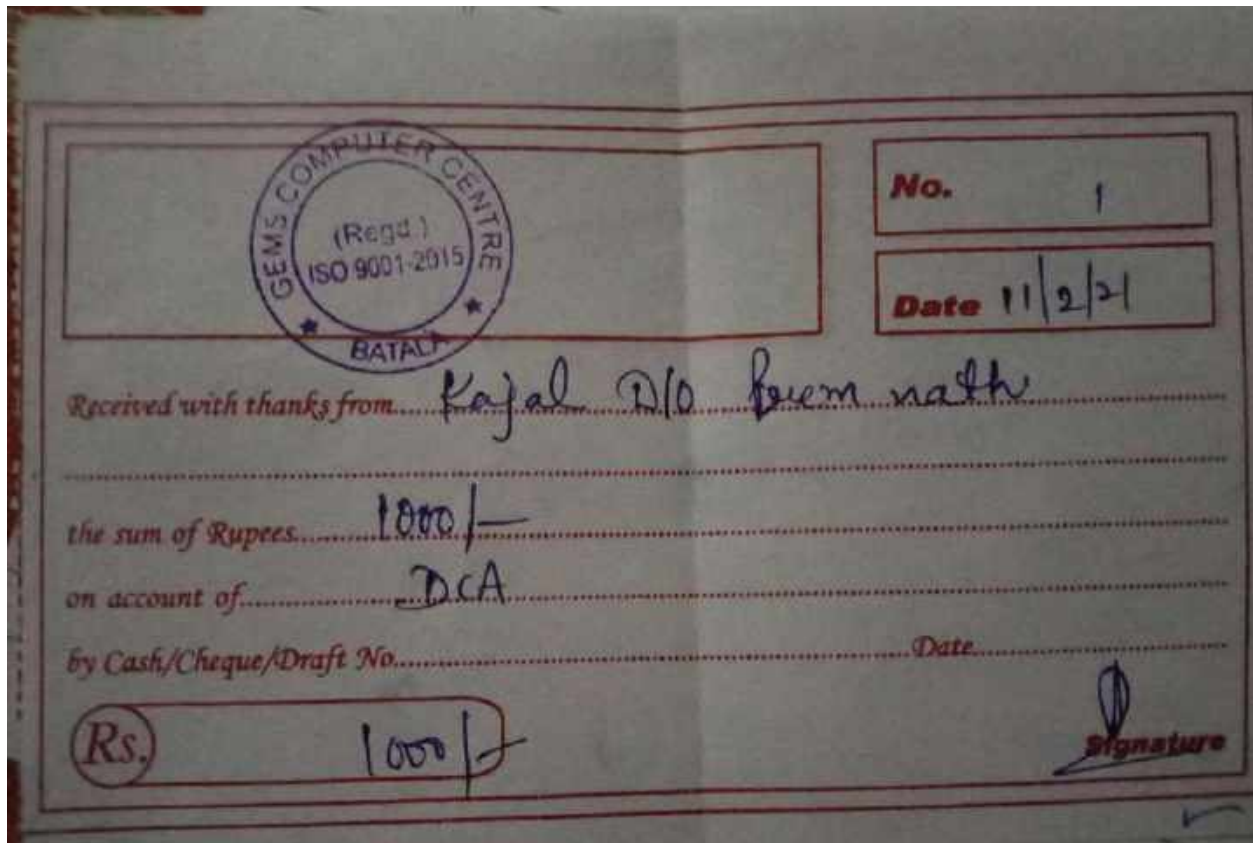 GEMS COMPUTER CENTRE
(Regd.)
ISO 9001-2015
BATALA
No. 1
Date 11/2/21
Received with thanks from Kajal D/O Prem nath
the sum of Rupees 1000/-
on account of DCA
by Cash/Cheque/Draft No. Date
Rs. 1000/-
Signature